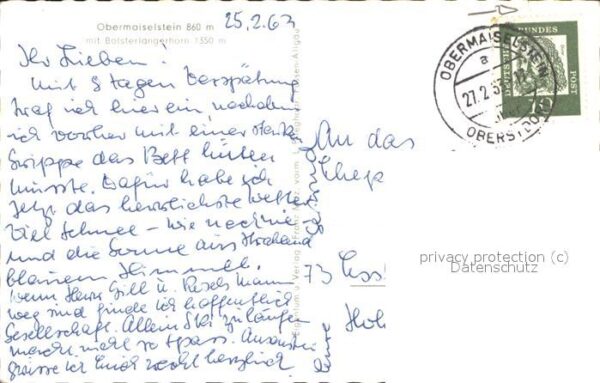 Obermaiselstein 860 m
mit Bolsterlangerhorn 1350 m
25.2.63
Ihr Lieben!
Mit 8 Tagen Verspätung
traf ich hier ein, nachdem
ich vorher mit einer starken
Grippe das Bett hüten
musste. Dafür habe ich
jetzt das herrlichste Wetter
viel Schnee – wie noch nie –
und die Sonne aus strahlend
blauem Himmel.
Wenn Herr Gill u.
weg sind finde ich hoffentlich
Gesellschaft. Allein Ski zu laufen
macht nicht so Spass. Ansonsten
grüsse ich Euch recht herzlich
An das
Ehep
73
Ho
OBERMAISELSTEIN
a
27.2.63
OBERSTDORF
DEUTSCHE BUNDESPOST
10
Eigentum u. Verlag
privacy protection (c)
Datenschutz